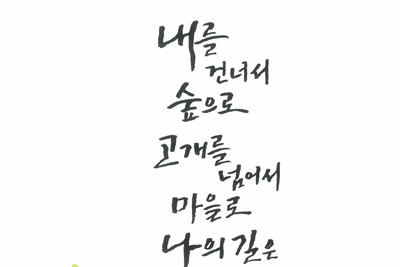 내를
건너서
숲으로
고개를
넘어서
마을로
나의 길은